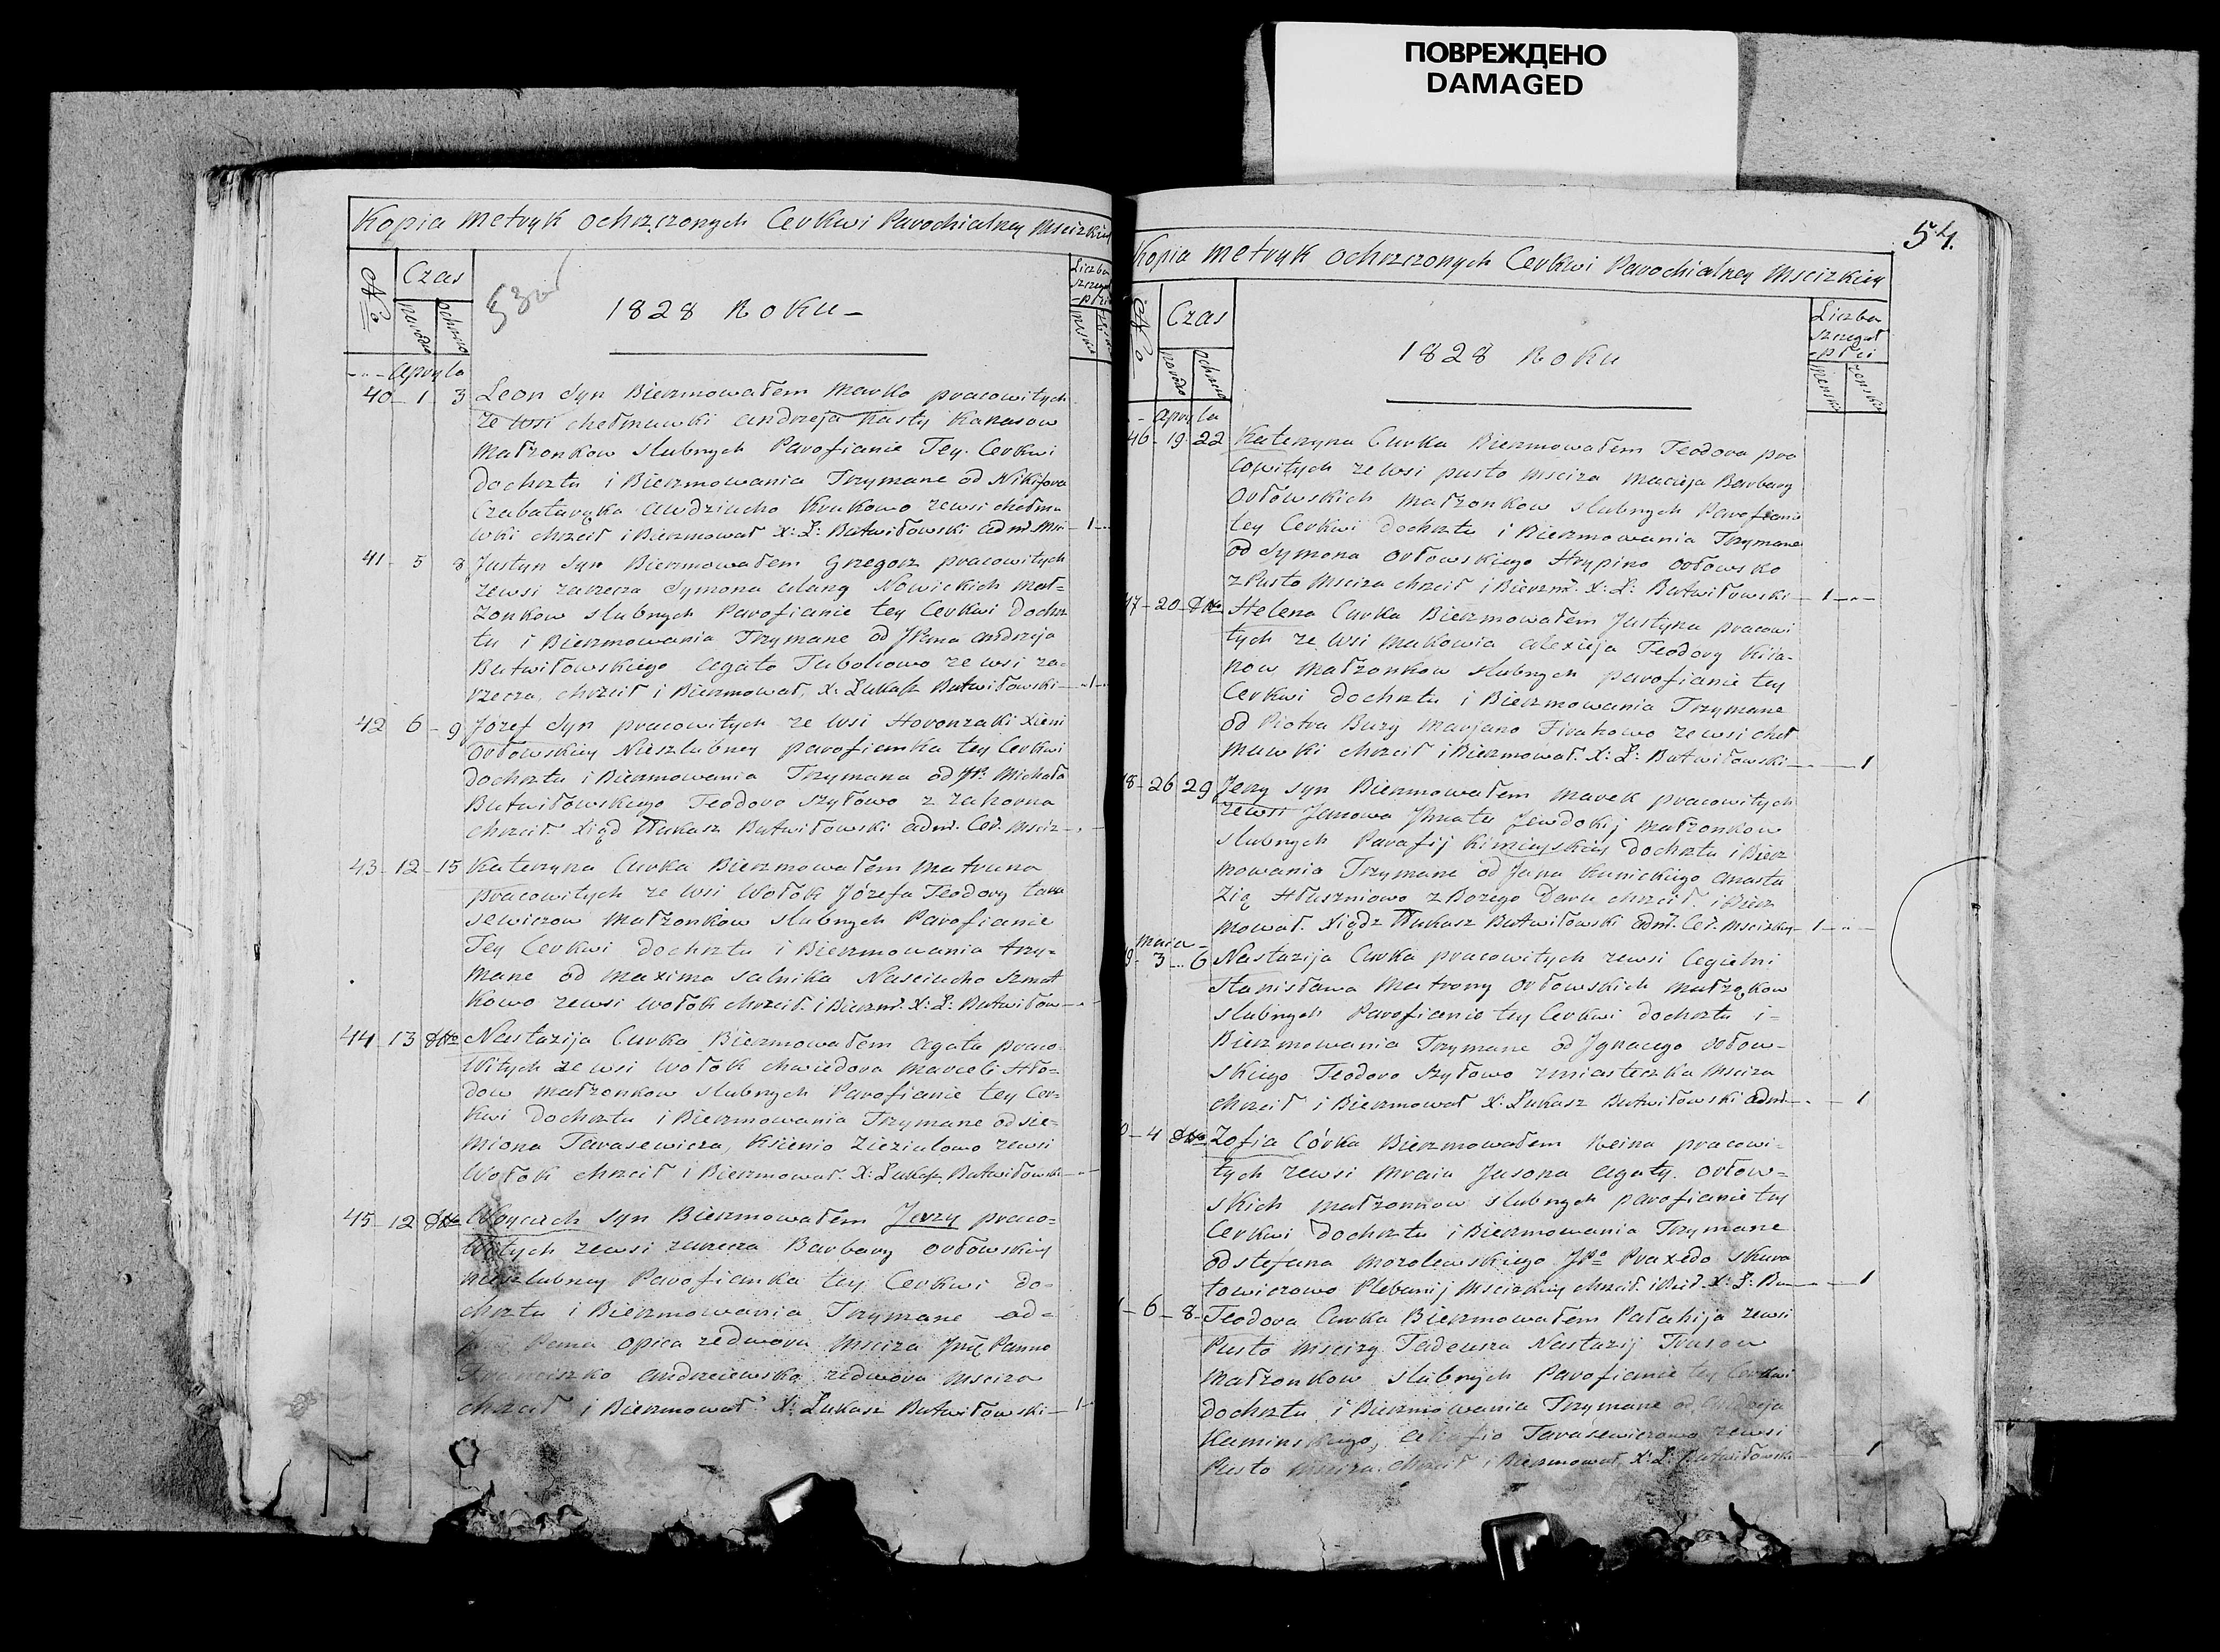 ПОВРЕЖДЕНО
DAMAGED
Kopia metryk ochrzczonych Cerkwi Parochialney
No
Czas
Liczba
53
1828 Roku
Apryla
40 1 3 Leon Syn Bierzmowałem Marko pracowitych
ze wsi chełmawki Andrzeja Nasty
Małzonkow slubnych Parofianie Tey Cerkwi
dochrztu i Bierzmowania Trzymane od Nikifora
Krukowo zewsi chełma
wki chrzcił i Bierzmował X: Ł: Butwiłowski adm 1
41 5 8 Justyn Syn Bierzmowałem Grzegorz pracowitych
zewsi zarzecza Symona Nowickich mał=
zonkow slubnych Parofianie tey Cerkwi dochrz
tu i Bierzmowania Trzymane od Andrzeja
Butwiłowskiego Agato ze wsi za=
rzecza, chrzcił i Bierzmował, X: Łukasz Butwiłowski 1
42 6 9 Jozef Syn pracowitych ze wsi Xieni
Orłowskiey Nieszlubney parofianka tey Cerkwi
dochrztu i Bierzmowania Trzymana od Michała
Butwiłowskiego Teodoro Szyłowo z
chrzcił Xiąd Łukasz Butwiłowski adm. Cer. Msciz
43 12 15 Katerzyna Curka Bierzmowałem Matruna
pracowitych ze wsi Wołok Józefa Teodory tara
sewiczow Małzonkow slubnych Parofianie
Tey Cerkwi dochrztu i Bierzmowania trzy=
mane od Maxima Salnika
kowo zewsi Wołok chrzcił i Bierzm. X: Ł: Butwiłow
44 13 Dtto Nastazija Curka Bierzmowałem Agata praco=
witych ze wsi Wołok chwiedora
dow małzonkow slubnych Parofianie tey Cer=
kwi dochrztu i Bierzmowania Trzymane od sie=
miona Tarasewicza, Ksienio zewsi
Wołok chrzcił i Bierzmował. X: Łukasz Butwiłowski
45 12 Dtto Woyciech syn Bierzmowałem Jerzy praco=
witych zewsi zarzecza Barbary Orłowskiey
nieszlubney Parofianka tey Cerkwi do=
chrztu i Bierzmowania Trzymane od=
Pana Opica zedwora Msciza Panno
Franciszko Andrzeiewsko zedwora Msciza
chrzcił i Bierzmował X: Łukasz Butwiłowski 1
54.
Kopia metryk ochrzczonych Cerkwi Parochialney Mscizkiey
No
Czas
Liczba
szczegul
-płci
1828 Roku
Apryla
46 19 22 Katerzyna Curka Bierzmowałem Teodora pra
cowitych ze wsi pusto msciza Macieja Barbary
Orłowskich małzonkow slubnych Parofianie
tey Cerkwi dochrztu i Bierzmowania Trzymane
od Symona Orłowskiego Hrypino Orłowsko
z Pusto Msciza chrzcił i Bierzm. X: Ł: Butwiłowski 1
47 20 Dtto Helena Curka Bierzmowałem Justyna pracowi
tych ze wsi Makowia Alexieja Teodory
now małzonkow slubnych parofianie tey
Cerkwi dochrztu i Bierzmowania Trzymane
od Piotra Bury Marjano zewsi cheł
mawki chrzcił i Bierzmował. X: Ł: Butwiłowski 1
8 26 29 Jerzy syn Bierzmowałem Marek pracowitych
zewsi Janowa Jewdokij małzonkow
slubnych Parafij dochrztu i Bierz
mowania Trzymane od Jana Kunickiego Anasta
zią z Bozego Daru chrzcił i Bierz
mował. Xiądz Łukasz Butwiłowski adm. Cer. Mscizkiey 1
Maia
9 3 6 Nastazija Curka pracowitych zewsi Cegielni
Stanisława Matrony Orłowskich małząkow
slubnych Parofianie tey Cerkwi dochrztu i=
Bierzmowania Trzymane od Jgnacego orłow=
skiego Teodoro Szyłowo zmiasteczka Msciza
chrzcił i Bierzmował X: Łukasz Butwiłowski adm. 1
0 4 Dtto Zofia Córka Bierzmowałem Reina pracowi=
tych zewsi Mraia Jasona Agaty. Orłow=
skich małzonkow slubnych parofianie tey
Cerkwi dochrztu i Bierzmowania Trzymane
od stefana Praxedo Skura
towiczowo Plebanij Mscizkiey chrzcił i X: Ł: Bu 1
6 8 Teodora Curka Bierzmowałem Pałahija zewsi
Pusto Mscizy Tadeusza Nastazij
Małzonkow slubnych Parofianie tey Cerkwi
dochrztu i Bierzmowania Trzymane od Andrzeja
Kaminskiego, Tarasewiczowo zewsi
Pusto Msciza. chrzcił i Bierzmował, X: Ł: Butwiłowski 1